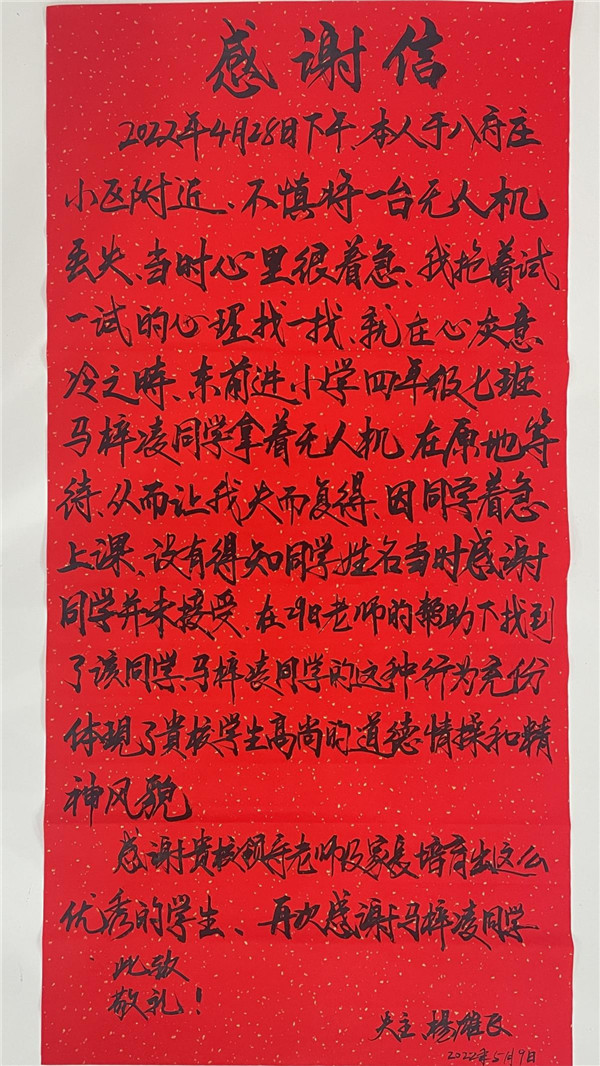 感谢信
2022年4月28日下午、本人于八府庄
小区附近、不慎将一台无人机
丢失、当时心里很着急、我抱着试
一试的心理找一找、就在心灰意
冷之时、东前进小学四年级七班
马梓凌同学拿着无人机在原地等
待、从而让我失而复得、因同学着急
上课、没有得知同学姓名当时感谢
同学并未接受、在29日老师的帮助下找到
了该同学、马梓凌同学的这种行为充份
体现了贵校学生高尚的道德情操和精
神风貌
感谢贵校领导老师及家长培育出这么
优秀的学生、再次感谢马梓凌同学
此致
敬礼！
失主、杨雄飞
2022年5月9日